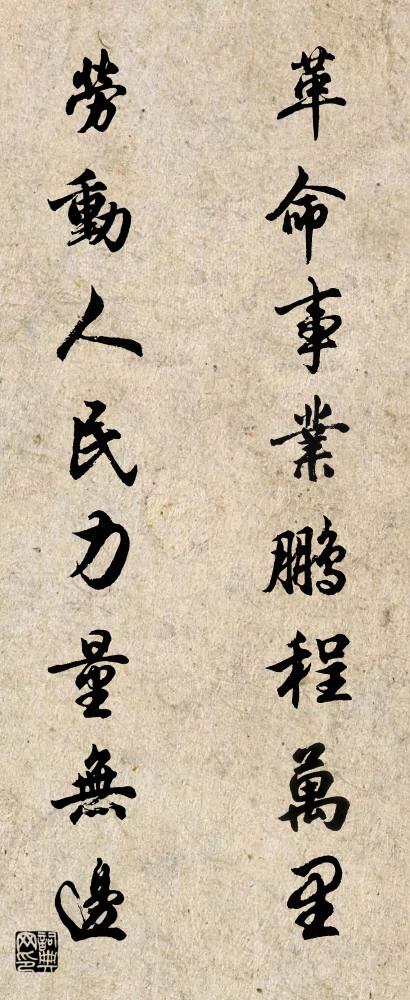 革命事業鵬程萬里
勞動人民力量無邊
詞典网印